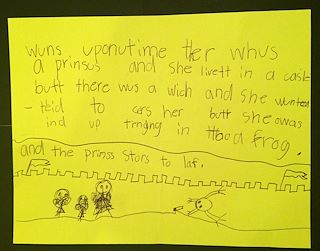 wuns uponutime ther whus
a prinsus and she livett in a casl
butt there wus a wich and she wunted
to cars her butt she owas
ind up trnging in too a frog.
and the prinss stors to laf.